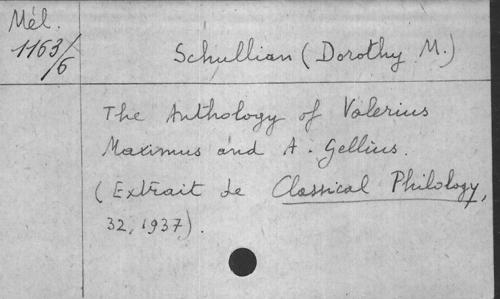 Mél.
1163/6
Schullian (Dorothy M.)
The Anthology of Valerius
Maximus and A. Gellius.
(Extrait de Classical Philology,
32, 1937).